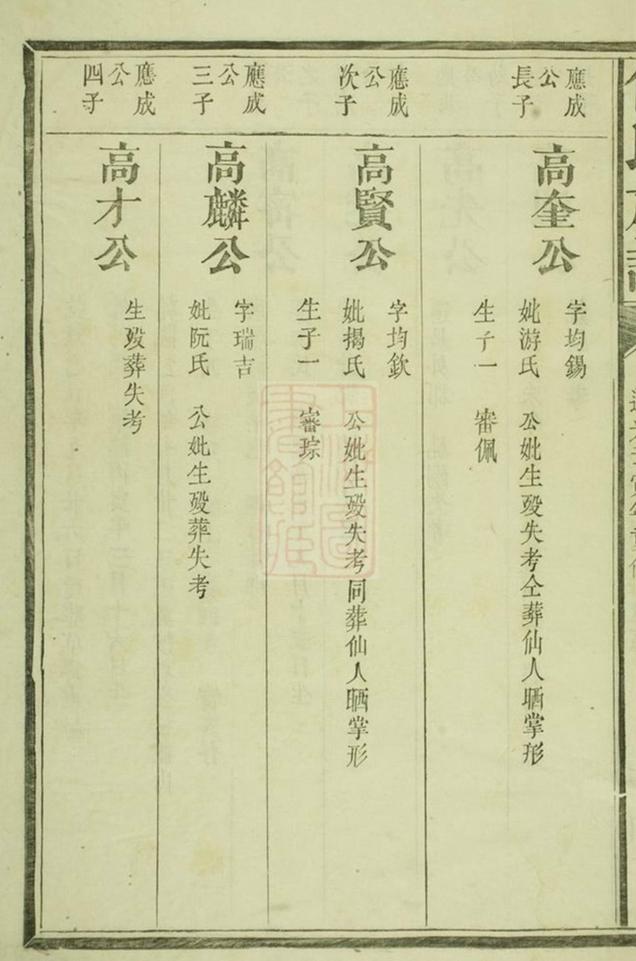 應成
公
長子
高奎公
字均錫
妣游氏 公妣生歿失考仝葬仙人晒掌形
生子一 審佩
應成
公
次子
高賢公
字均欽
妣揭氏 公妣生歿失考同葬仙人晒掌形
生子一 審琮
應成
公
三子
高麟公
字瑞吉
妣阮氏 公妣生歿葬失考
應成
公
四子
高才公
生歿葬失考